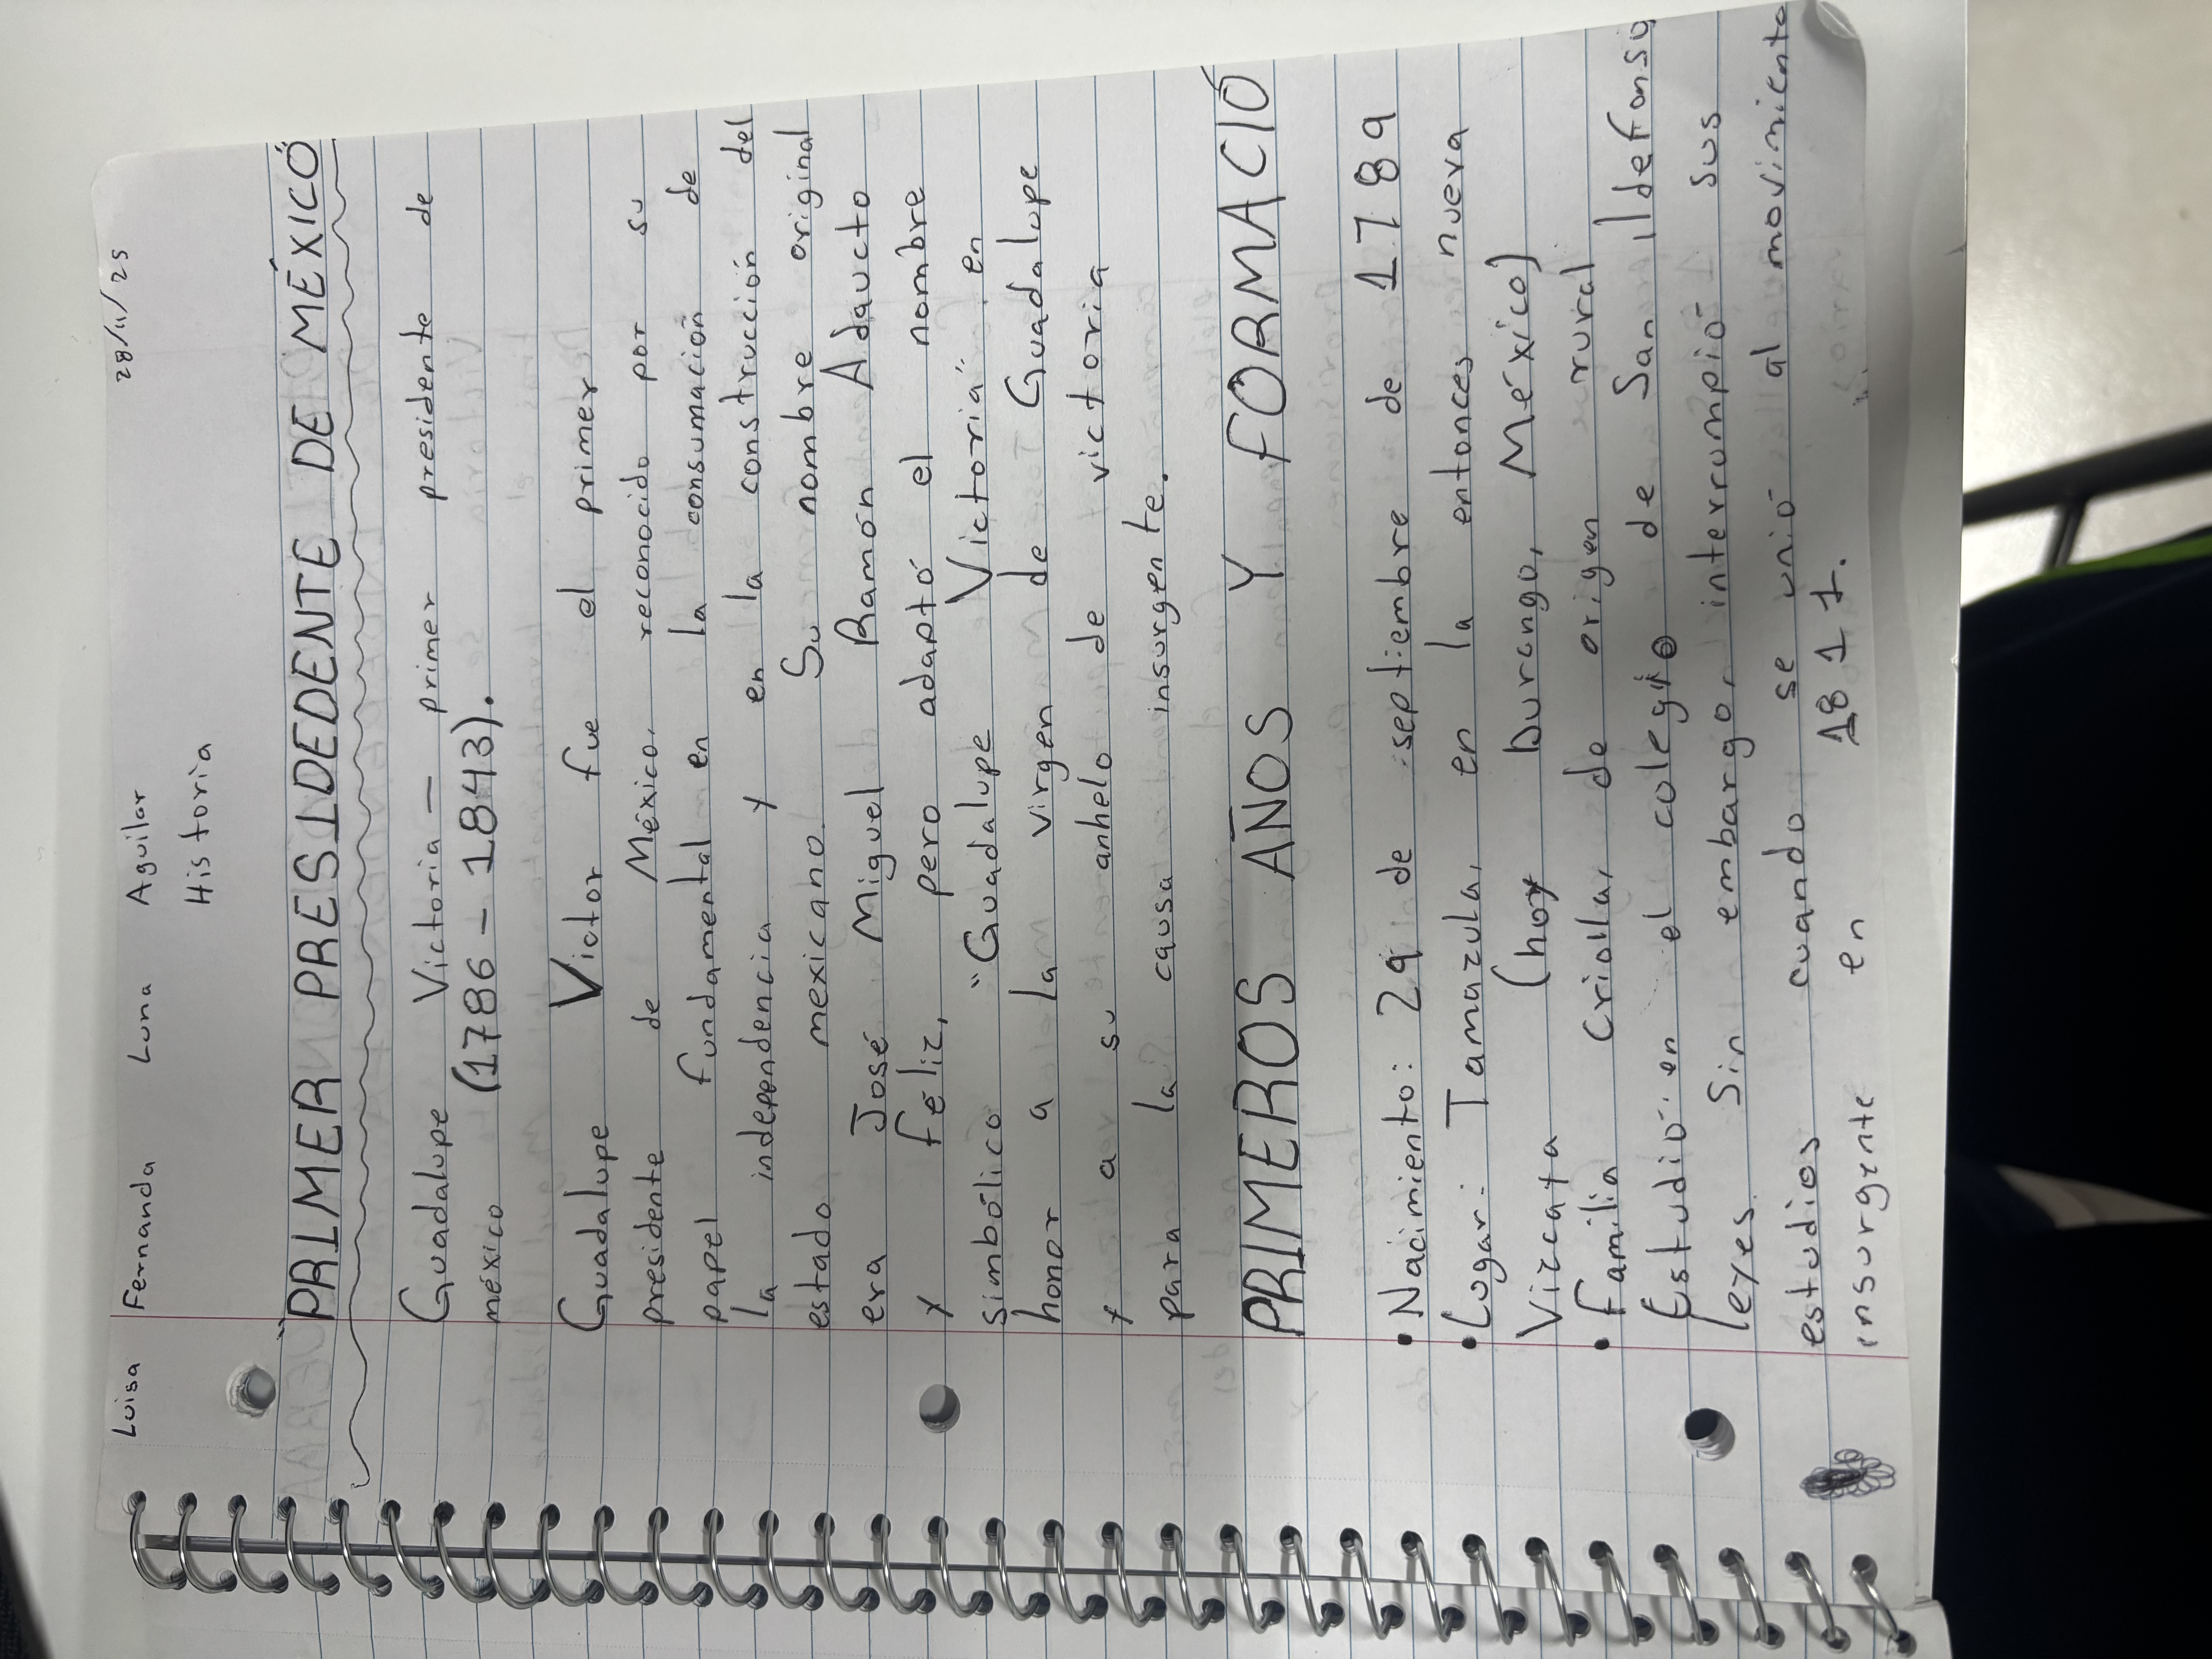 Luisa Fernanda Luna Aguilar 28/11/25
Historia
"PRIMER PRESIDEDENTE DE MÉXICO"
Guadalupe Victoria - primer presidente de
méxico (1786 - 1843).
Guadalupe Victor fue el primer
presidente de México, reconocido por su
papel fundamental en la consumación de
la independencia y en la construcción del
estado mexicano. Su nombre original
era José Miguel Ramón Adaucto
y félix, pero adaptó el nombre
simbólico "Guadalupe Victoria" en
honor a la virgen de Guadalupe
y a su anhelo de victoria
para la causa insurgente.
PRIMEROS AÑOS Y FORMACIÓ
• Nacimiento: 29 de septiembre de 1789
• Lugar: Tamazula, en la entonces nueva
Vizcaya (hoy Durango, México)
• familia Criolla, de origen rural
Estudió en el colegio de San Ildefonso
leyes. Sin embargo, interrumpió sus
estudios cuando se unió al movimiento
insurgente en 1811.